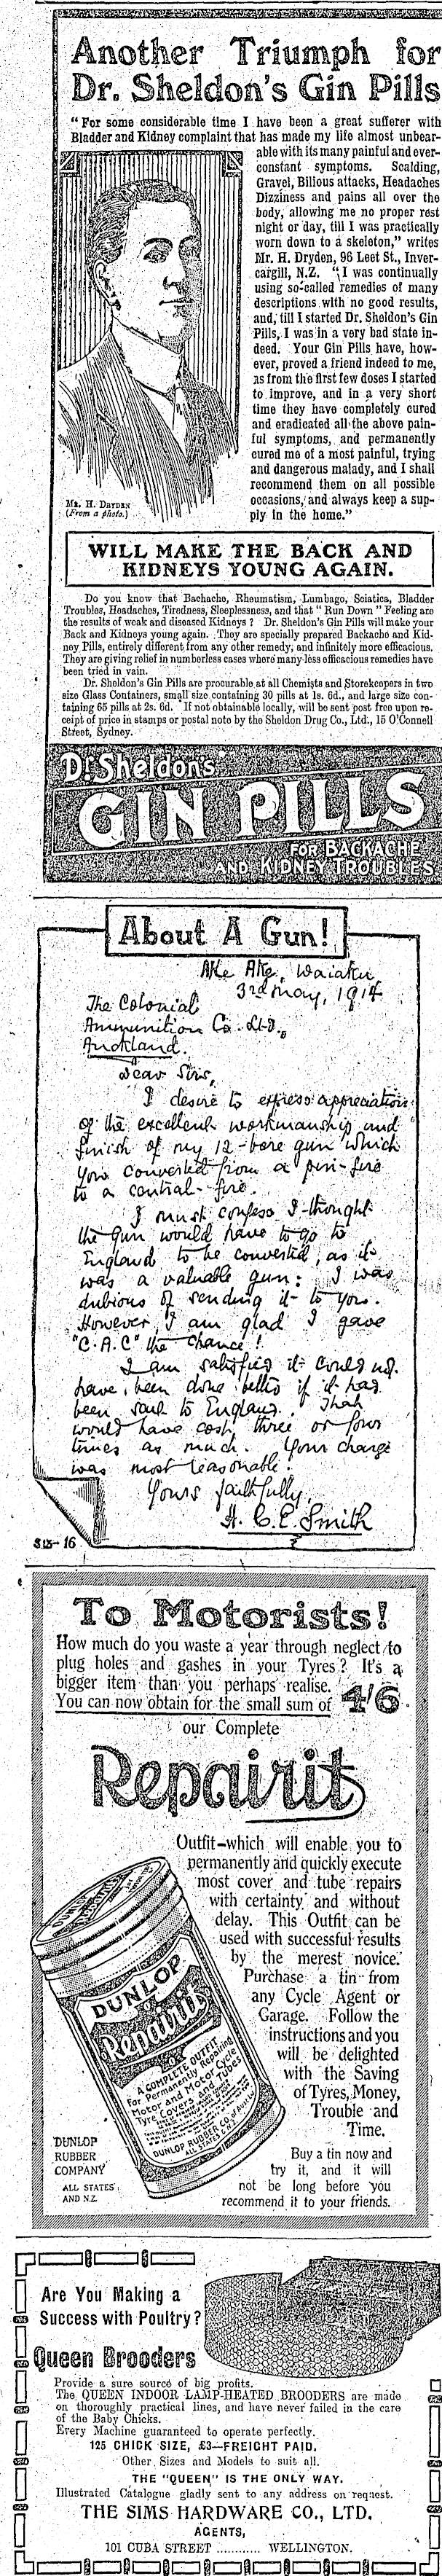 Another Triumph for
Dr. Sheldon's Gin Pills
"For some considerable time I have been a great sufferer with
Bladder and Kidney complaint that has made my life almost unbear-
able with its many painful and ever-
constant symptoms. Scalding,
Gravel, Bilious attacks, Headaches
Dizziness and pains all over the
body, allowing me no proper rest
night or day, till I was practically
worn down to a skeleton," writes
Mr. H. Dryden, 96 Leet St., Inver-
cargill, N.Z. "I was continually
using so-called remedies of many
descriptions with no good results,
and, till I started Dr. Sheldon's Gin
Pills, I was in a very bad state in-
deed. Your Gin Pills have, how-
ever, proved a friend indeed to me,
as from the first few doses I started
to improve, and in a very short
time they have completely cured
and eradicated all the above pain-
ful symptoms, and permanently
cured me of a most painful, trying
and dangerous malady, and I shall
recommend them on all possible
occasions, and always keep a sup-
ply in the home."
MR. H. DRYDEN
(From a photo.)
WILL MAKE THE BACK AND
KIDNEYS YOUNG AGAIN.
Do you know that Bachache, Rheumatism, Lumbago, Sciatica, Bladder
Troubles, Headaches, Tiredness, Sleeplessness, and that "Run Down" Feeling are
the results of weak and diseased Kidneys? Dr. Sheldon's Gin Pills will make your
Back and Kidneys young again. They are specially prepared Backache and Kid-
ney Pills, entirely different from any other remedy, and infinitely more efficacious.
They are giving relief in numberless cases where many less efficacious remedies have
been tried in vain.
Dr. Sheldon's Gin Pills are procurable at all Chemists and Storekeepers in two
size Glass Containers, small size containing 30 pills at 1s. 6d., and large size con-
taining 65 pills at 2s. 6d. If not obtainable locally, will be sent post free upon re-
ceipt of price in stamps or postal note by the Sheldon Drug Co., Ltd., 15 O'Connell
Street, Sydney.
Dr. Sheldon's
GIN PILLS
FOR BACKACHE
AND KIDNEY TROUBLES
About A Gun!
Ake Ake, Waiuku
3rd May, 1914
The Colonial
Ammunition Co. Ltd.,
Auckland.
Dear Sirs,
I desire to express appreciation
of the excellent workmanship and
finish of my 12-bore gun which
you converted from a pin-fire
to a central-fire.
I must confess I thought
the gun would have to go to
England to be converted, as it
was a valuable gun: I was
dubious of sending it to you.
However, I am glad I gave
"C.A.C" the chance!
I am satisfied it could not
have been done better if it had
been sent to England. That
would have cost three or four
times as much. Your charge
was most reasonable.
Yours faithfully,
H. C. E. Smith
S13-16
To Motorists!
How much do you waste a year through neglect to
plug holes and gashes in your Tyres? It's a
bigger item than you perhaps realise.
You can now obtain for the small sum of 4/6
our Complete
Repairit
Outfit—which will enable you to
permanently and quickly execute
most cover and tube repairs
with certainty and without
delay. This Outfit can be
used with successful results
by the merest novice.
Purchase a tin from
any Cycle Agent or
Garage. Follow the
instructions and you
will be delighted
with the Saving
of Tyres, Money,
Trouble and
Time.
DUNLOP
Repairit
A COMPLETE OUTFIT
For Permanently Repairing
Motor and Motor Cycle
Tyre Covers and Tubes
DUNLOP RUBBER CO of Aust
DUNLOP
RUBBER
COMPANY
ALL STATES
AND N.Z.
Buy a tin now and
try it, and it will
not be long before you
recommend it to your friends.
Are You Making a
Success with Poultry?
Queen Brooders
Provide a sure source of big profits.
The QUEEN INDOOR LAMP-HEATED BROODERS are made
on thoroughly practical lines, and have never failed in the care
of the Baby Chicks.
Every Machine guaranteed to operate perfectly.
125 CHICK SIZE, £3—FREIGHT PAID.
Other Sizes and Models to suit all.
THE "QUEEN" IS THE ONLY WAY.
Illustrated Catalogue gladly sent to any address on request.
THE SIMS HARDWARE CO., LTD.
AGENTS,
101 CUBA STREET ............ WELLINGTON.